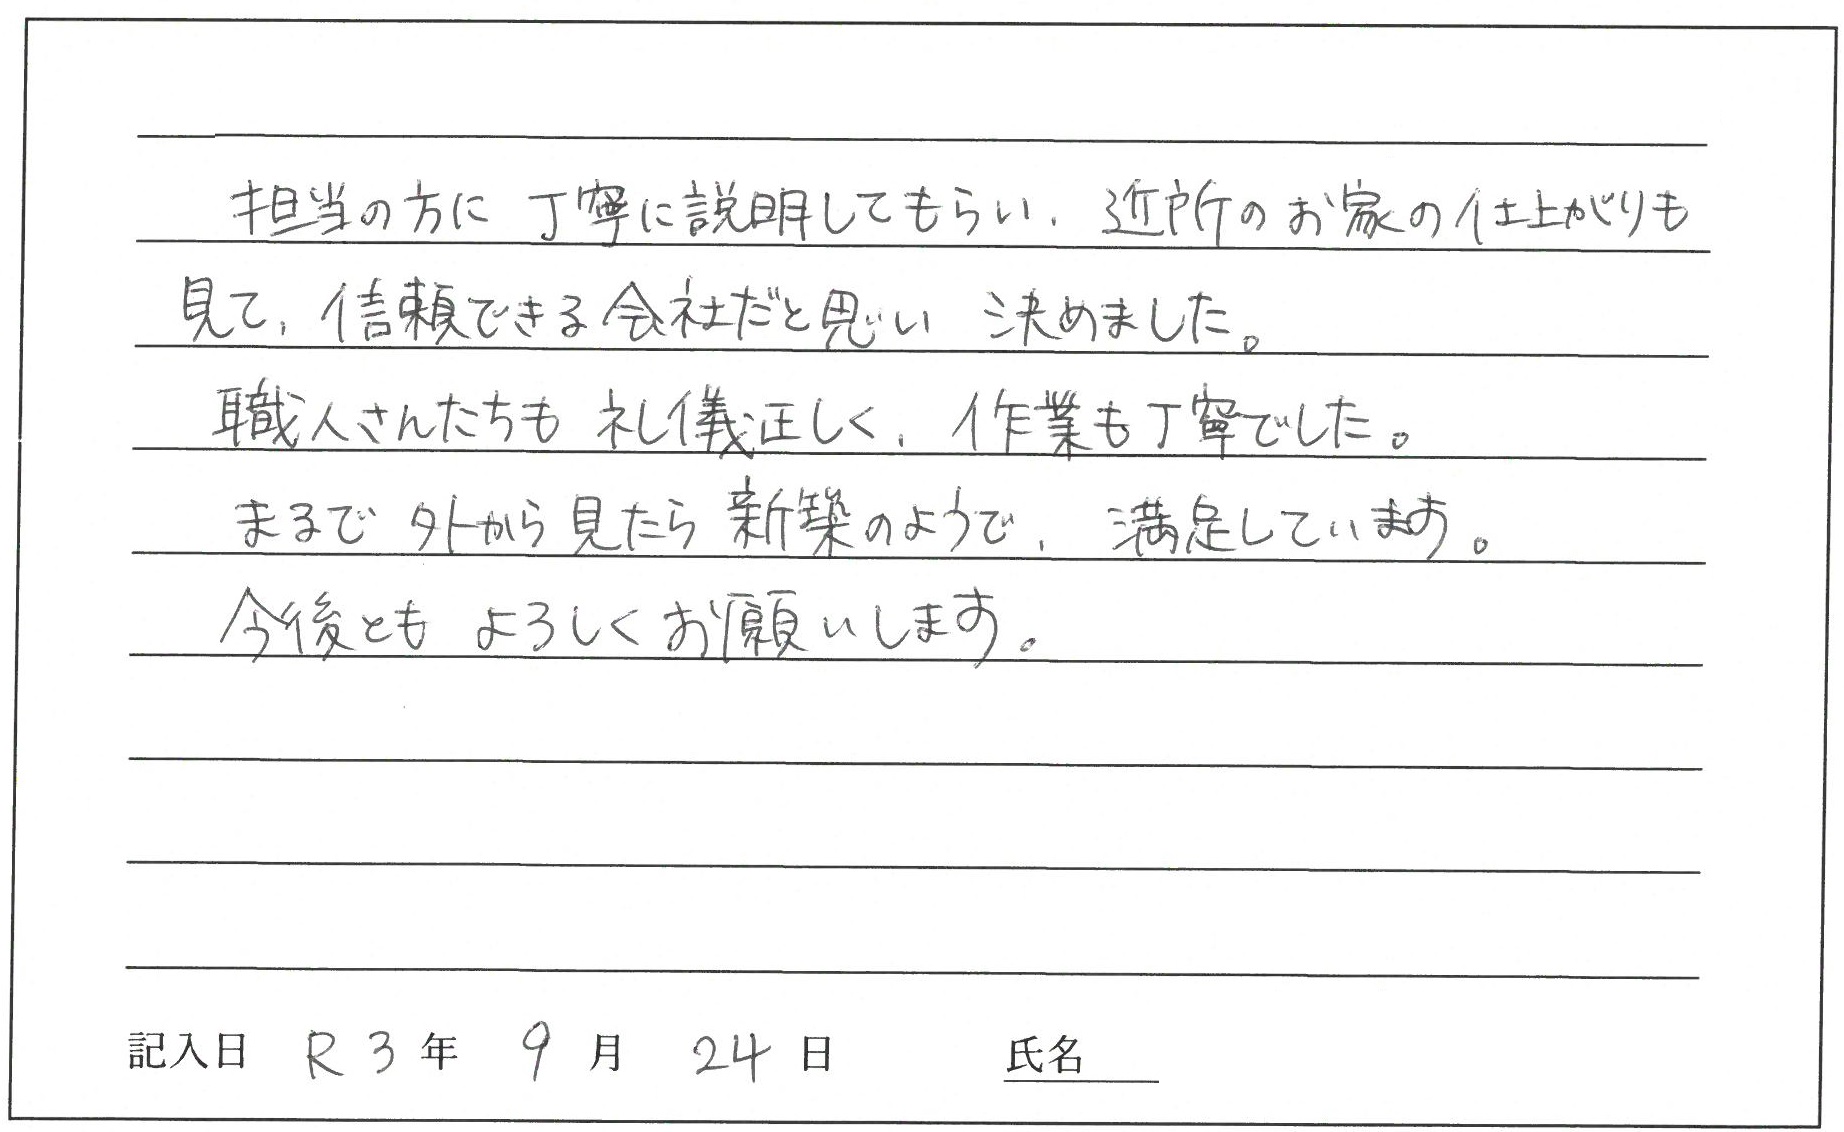 担当の方に 丁寧に説明してもらい、近所のお家の仕上がりも
見て、信頼できる会社だと思い 決めました。
職人さんたちも 礼儀正しく、作業も丁寧でした。
まるで 外から見たら 新築のようで、満足しています。
今後とも よろしくお願いします。
記入日 R3年 9月 24日 氏名